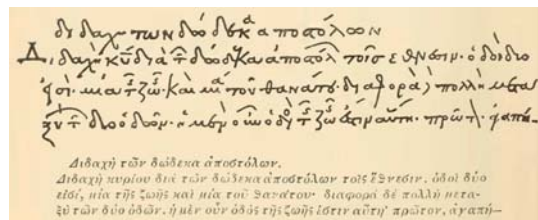 διδαχὴ των δώδεκα αποστόλων
Διδαχὴ κ̅υ̅ διὰ τ δώδεκα αποστόλ τοῖς ἔθνεσιν· ὁδοὶ δύο
εἰσί· μία τ ζω· καὶ μία τοῦ θανάτου· διαφορὰ πολλὴ μετα
ξὺ τ δύο ὁδῶν· ἡ μὲν τ ζω αὕτη· πρῶτ· ἀγαπή-
Διδαχὴ τῶν δώδεκα ἀποστόλων.
Διδαχὴ κυρίου διὰ τῶν δώδεκα ἀποστόλων τοῖς ἔθνεσιν. ὁδοὶ δύο
εἰσί, μία τῆς ζωῆς καὶ μία τοῦ θανάτου· διαφορὰ δὲ πολλὴ μετα-
ξὺ τῶν δύο ὁδῶν. ἡ μὲν οὖν ὁδὸς τῆς ζωῆς ἐστιν αὕτη· πρῶτον, ἀγαπή—